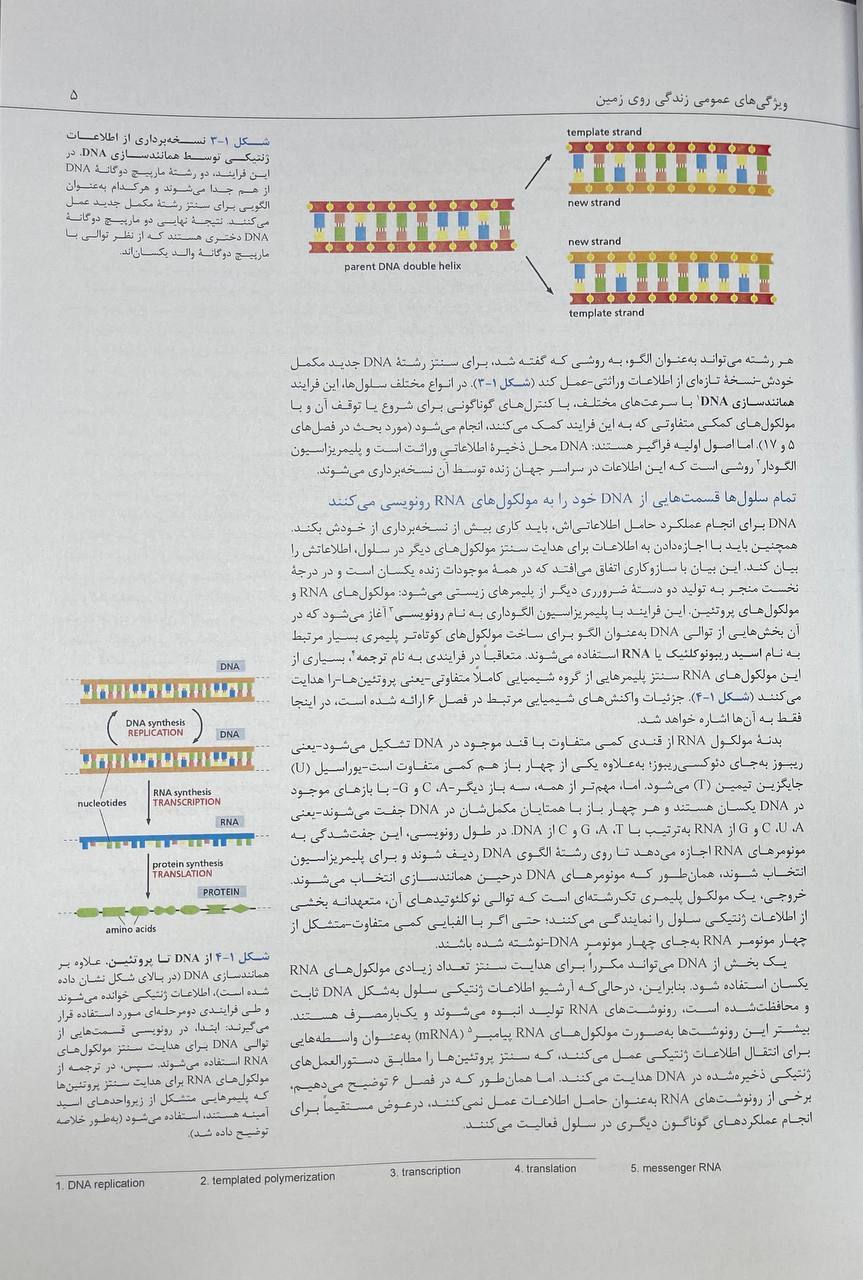 ویژگی‌های عمومی زندگی روی زمین
۵
شکل ۱-۳ نسخه‌برداری از اطلاعات
ژنتیکی توسط همانندسازی DNA. در
این فرایند، دو رشتهٔ مارپیچ دوگانهٔ DNA
از هم جدا می‌شوند و هرکدام به‌عنوان
الگویی برای سنتز رشتهٔ مکمل جدید عمل
می‌کنند. نتیجهٔ نهایی دو مارپیچ دوگانهٔ
DNA دختری هستند که از نظر توالی با
مارپیچ دوگانهٔ والد یکسان‌اند.
template strand
new strand
parent DNA double helix
new strand
template strand
هر رشته می‌تواند به‌عنوان الگو، به روشی که گفته شد، برای سنتز رشتهٔ DNA جدید مکمل
خودش-نسخهٔ تازه‌ای از اطلاعات وراثتی-عمل کند (شکل ۱-۳). در انواع مختلف سلول‌ها، این فرایند
همانندسازی DNA۱ با سرعت‌های مختلف، با کنترل‌های گوناگونی برای شروع یا توقف آن و با
مولکول‌های کمکی متفاوتی که به این فرایند کمک می‌کنند، انجام می‌شود (مورد بحث در فصل‌های
۵ و ۱۷). اما اصول اولیه فراگیر هستند: DNA محل ذخیرهٔ اطلاعاتی وراثت است و پلیمریزاسیون
الگودار۲ روشی است که این اطلاعات در سراسر جهان زنده توسط آن نسخه‌برداری می‌شوند.
تمام سلول‌ها قسمت‌هایی از DNA خود را به مولکول‌های RNA رونویسی می‌کنند
DNA برای انجام عملکرد حامل اطلاعاتی‌اش، باید کاری بیش از نسخه‌برداری از خودش بکند.
همچنین باید با اجازه‌دادن به اطلاعات برای هدایت سنتز مولکول‌های دیگر در سلول، اطلاعاتش را
بیان کند. این بیان با سازوکاری اتفاق می‌افتد که در همهٔ موجودات زنده یکسان است و در درجهٔ
نخست منجر به تولید دو دستهٔ ضروری دیگر از پلیمرهای زیستی می‌شود: مولکول‌های RNA و
مولکول‌های پروتئین. این فرایند با پلیمریزاسیون الگوداری به نام رونویسی۳ آغاز می‌شود که در
آن بخش‌هایی از توالی DNA به‌عنوان الگو برای ساخت مولکول‌های کوتاه‌تر پلیمری بسیار مرتبط
به نام اسید ریبونوکلئیک یا RNA استفاده می‌شوند. متعاقباً در فرایندی به نام ترجمه۴، بسیاری از
این مولکول‌های RNA سنتز پلیمرهایی از گروه شیمیایی کاملاً متفاوتی-یعنی پروتئین‌ها-را هدایت
می‌کنند (شکل ۱-۴). جزئیات واکنش‌های شیمیایی مرتبط در فصل ۶ ارائه شده است، در اینجا
فقط به آن‌ها اشاره خواهد شد.
بدنهٔ مولکول RNA از قندی کمی متفاوت با قند موجود در DNA تشکیل می‌شود-یعنی
ریبوز به‌جای دئوکسی‌ریبوز؛ به‌علاوه یکی از چهار باز هم کمی متفاوت است-یوراسیل (U)
جایگزین تیمین (T) می‌شود. اما، مهم‌تر از همه، سه باز دیگر-A، C و G- با بازهای موجود
در DNA یکسان هستند و هر چهار باز با همتایان مکمل‌شان در DNA جفت می‌شوند-یعنی
A، U، C و G از RNA به‌ترتیب با T، A، G و C از DNA. در طول رونویسی، این جفت‌شدگی به
مونومرهای RNA اجازه می‌دهد تا روی رشتهٔ الگوی DNA ردیف شوند و برای پلیمریزاسیون
انتخاب شوند، همان‌طور که مونومرهای DNA درحین همانندسازی انتخاب می‌شوند.
خروجی، یک مولکول پلیمری تک‌رشته‌ای است که توالی نوکلئوتیدهای آن، متعهدانه بخشی
از اطلاعات ژنتیکی سلول را نمایندگی می‌کنند؛ حتی اگر با الفبایی کمی متفاوت-متشکل از
چهار مونومر RNA به‌جای چهار مونومر DNA-نوشته شده باشند.
یک بخش از DNA می‌تواند مکرراً برای هدایت سنتز تعداد زیادی مولکول‌های RNA
یکسان استفاده شود. بنابراین، درحالی‌که آرشیو اطلاعات ژنتیکی سلول به‌شکل DNA ثابت
و محافظت‌شده است، رونوشت‌های RNA تولید انبوه می‌شوند و یک‌بارمصرف هستند.
بیشتر این رونوشت‌ها به‌صورت مولکول‌های RNA پیامبر۵ (mRNA) به‌عنوان واسطه‌هایی
برای انتقال اطلاعات ژنتیکی عمل می‌کنند، که سنتز پروتئین‌ها را مطابق دستورالعمل‌های
ژنتیکی ذخیره‌شده در DNA هدایت می‌کنند. اما همان‌طور که در فصل ۶ توضیح می‌دهیم،
برخی از رونوشت‌های RNA به‌عنوان حامل اطلاعات عمل نمی‌کنند، درعوض مستقیماً برای
انجام عملکردهای گوناگون دیگری در سلول فعالیت می‌کنند.
DNA
DNA synthesis
REPLICATION
DNA
nucleotides
RNA synthesis
TRANSCRIPTION
RNA
protein synthesis
TRANSLATION
PROTEIN
amino acids
شکل ۱-۴ از DNA تا پروتئین. علاوه بر
همانندسازی DNA (در بالای شکل نشان داده
شده است)، اطلاعات ژنتیکی خوانده می‌شوند
و طی فرایندی دومرحله‌ای مورد استفاده قرار
می‌گیرند: ابتدا، در رونویسی قسمت‌هایی از
توالی DNA برای هدایت سنتز مولکول‌های
RNA استفاده می‌شوند. سپس، در ترجمه از
مولکول‌های RNA برای هدایت سنتز پروتئین‌ها
که پلیمرهایی متشکل از زیرواحدهای اسید
آمینه هستند، استفاده می‌شود (به‌طور خلاصه
توضیح داده شد).
1. DNA replication 2. templated polymerization 3. transcription 4. translation 5. messenger RNA